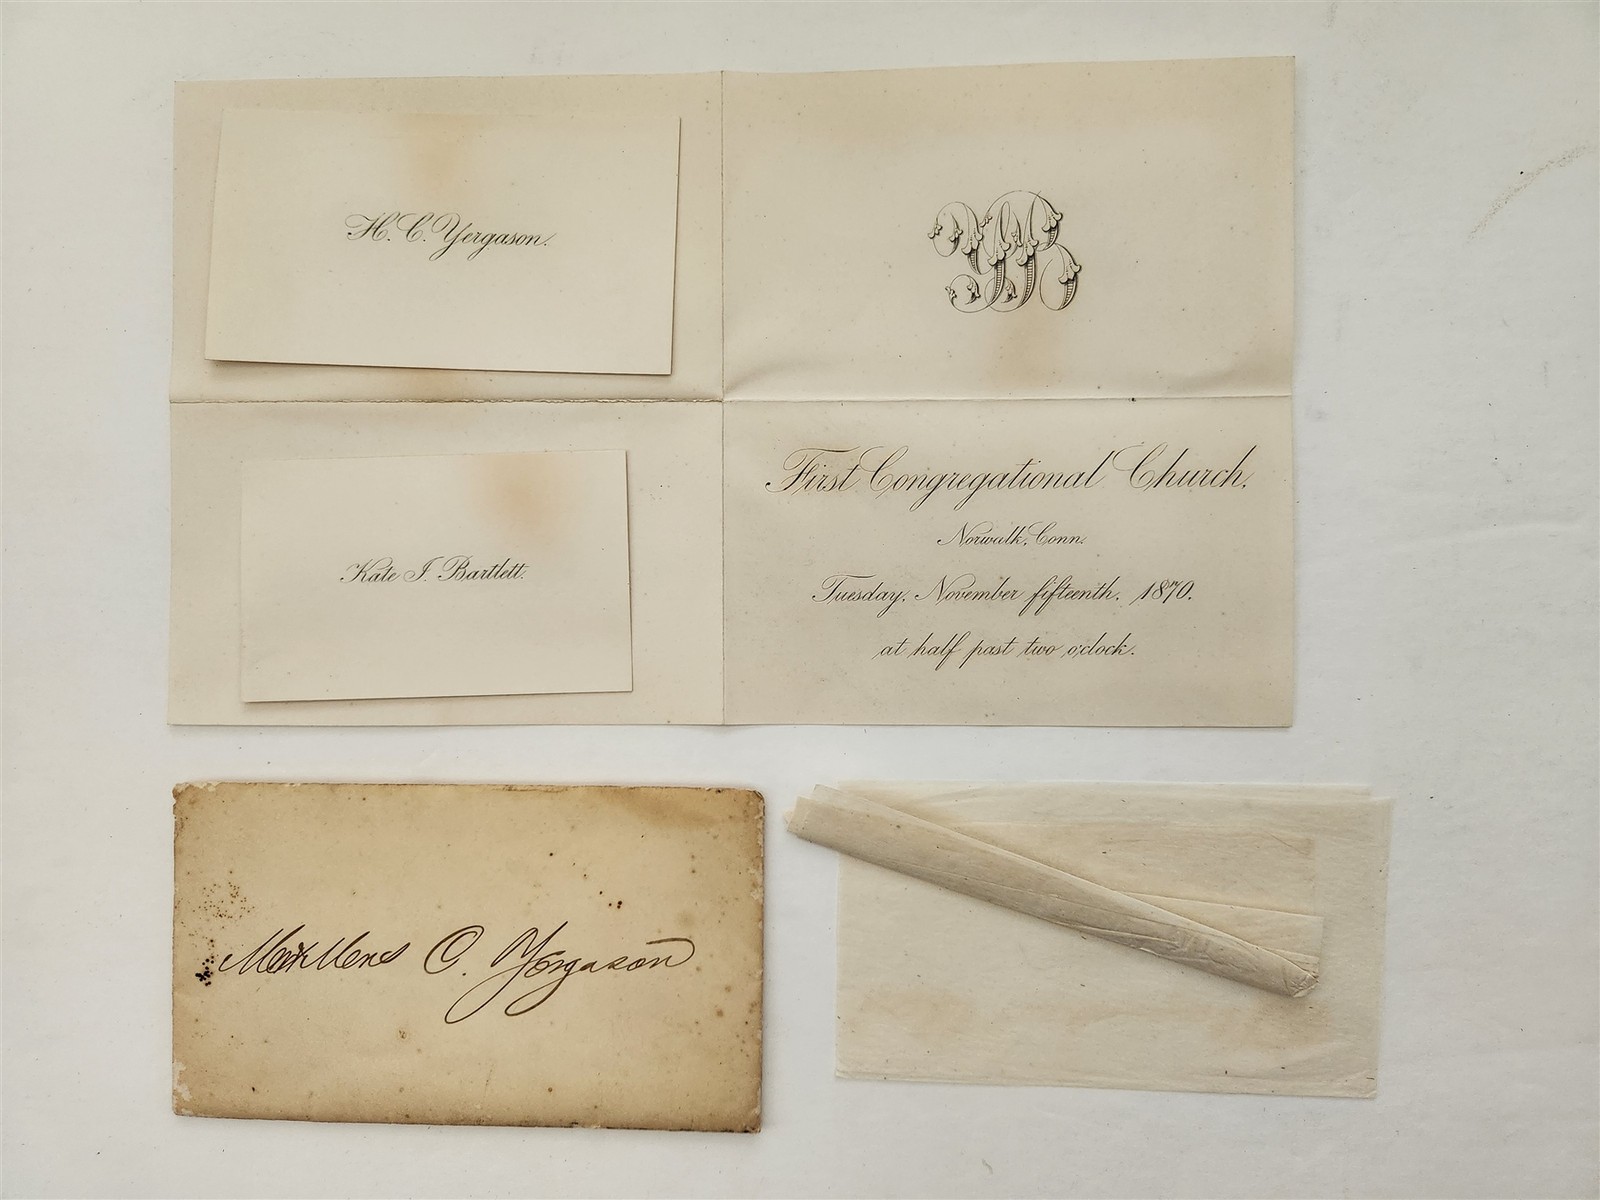 H. C. Yergason.
Kate I. Bartlett.
First Congregational Church.
Norwalk, Conn.
Tuesday, November fifteenth, 1870.
at half past two o'clock.
C. Yergason